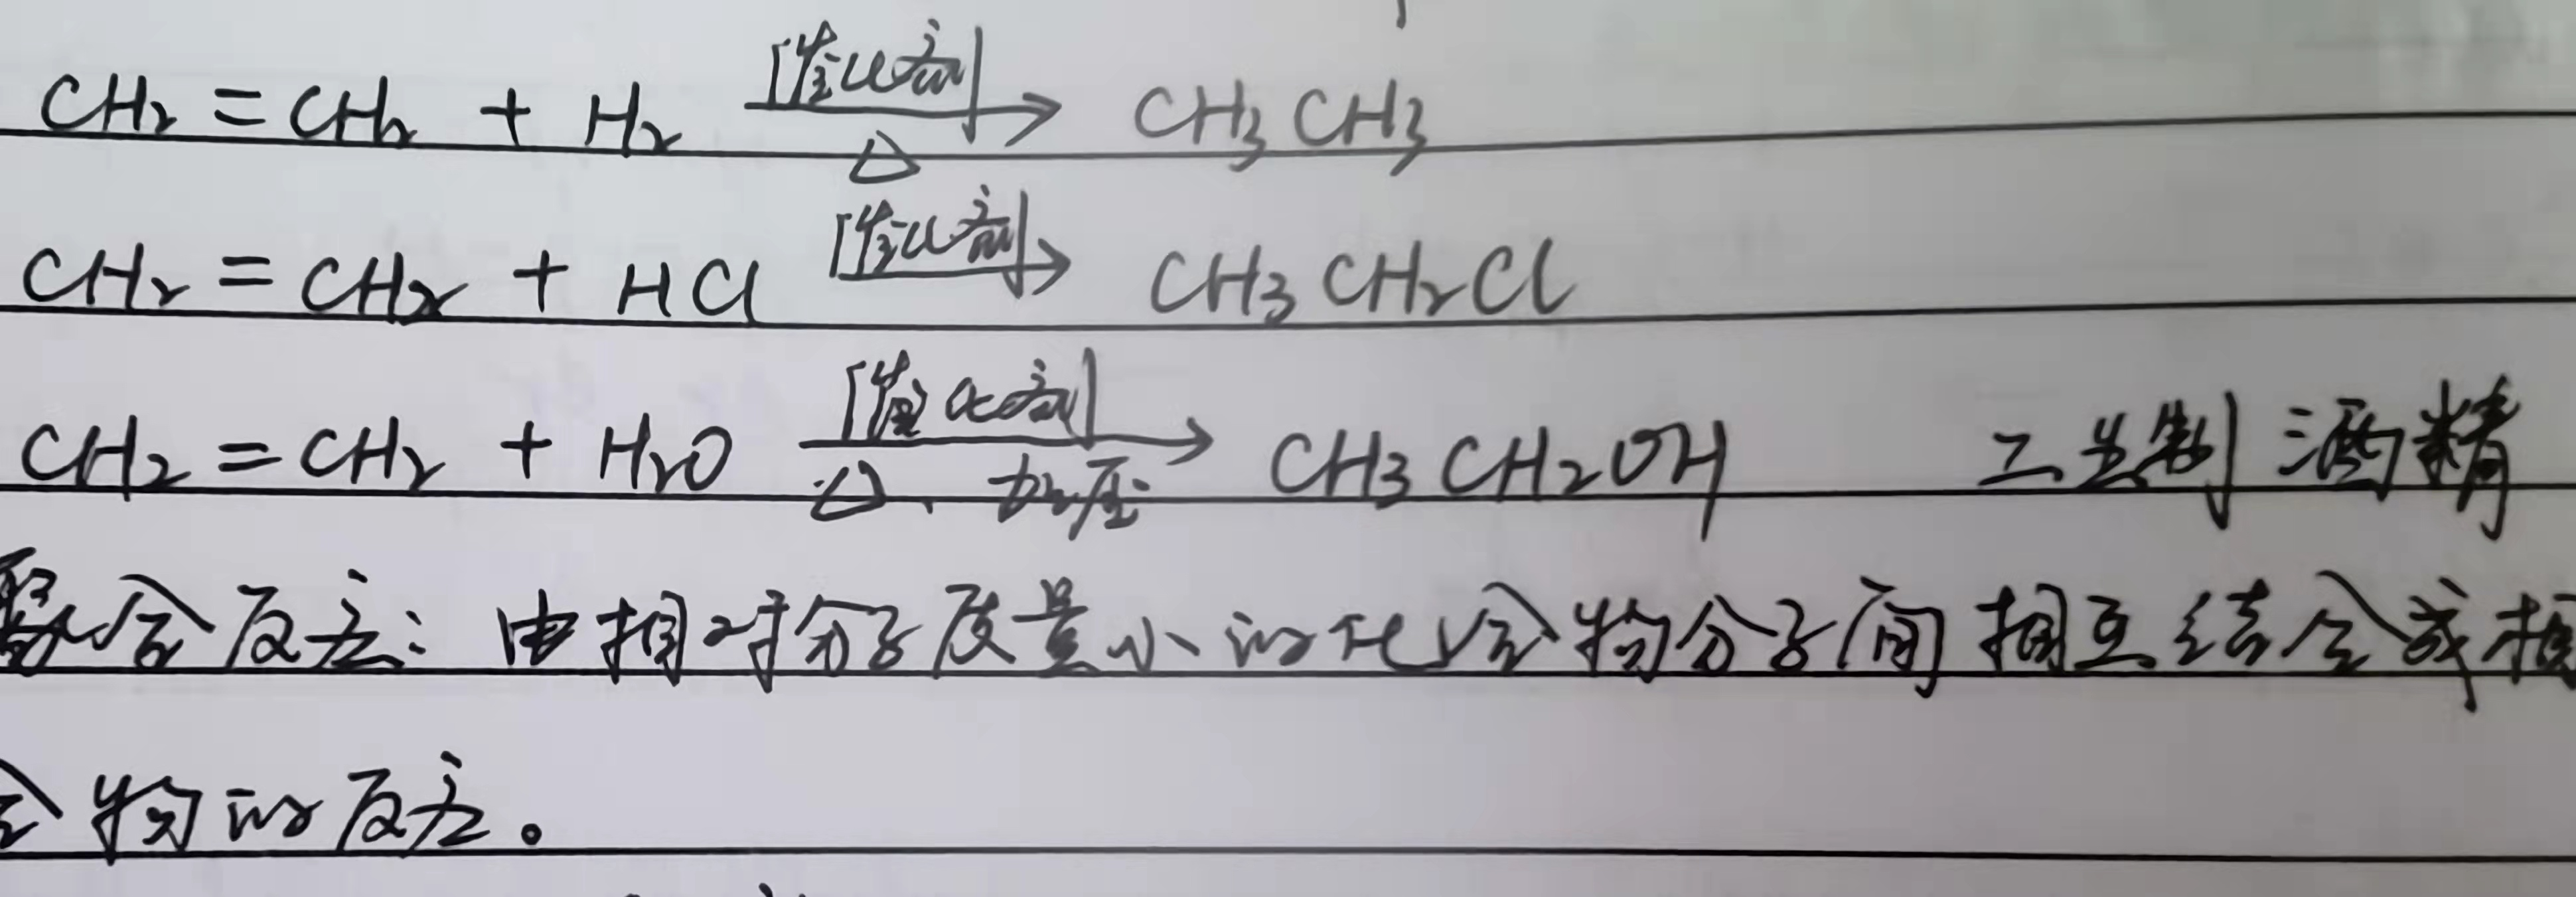 CH₂=CH₂ + H₂ —催化剂/△→ CH₃CH₃
CH₂=CH₂ + HCl —催化剂→ CH₃CH₂Cl
CH₂=CH₂ + H₂O —催化剂/△、加压→ CH₃CH₂OH 工业制酒精
聚合反应：由相对分子质量小的化合物分子间相互结合成相
合物的反应。